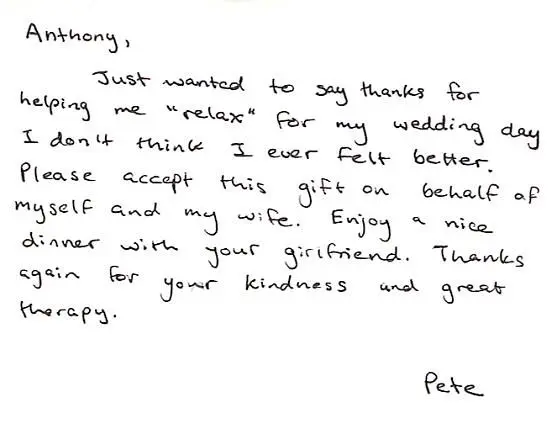 Anthony,
Just wanted to say thanks for
helping me "relax" for my wedding day
I don't think I ever felt better.
Please accept this gift on behalf of
myself and my wife. Enjoy a nice
dinner with your girlfriend. Thanks
again for your kindness and great
therapy.
Pete